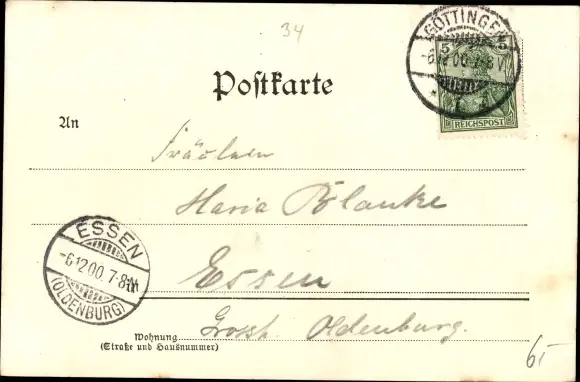 34
GÖTTINGEN
-6.12.00.7-8V
5 5
REICHSPOST
Postkarte
An
Fräulein
Maria Blanke
ESSEN
-6.12.00.7-8N
(OLDENBURG)
in
Essen
Grossh. Oldenburg.
Wohnung
(Straße und Hausnummer)